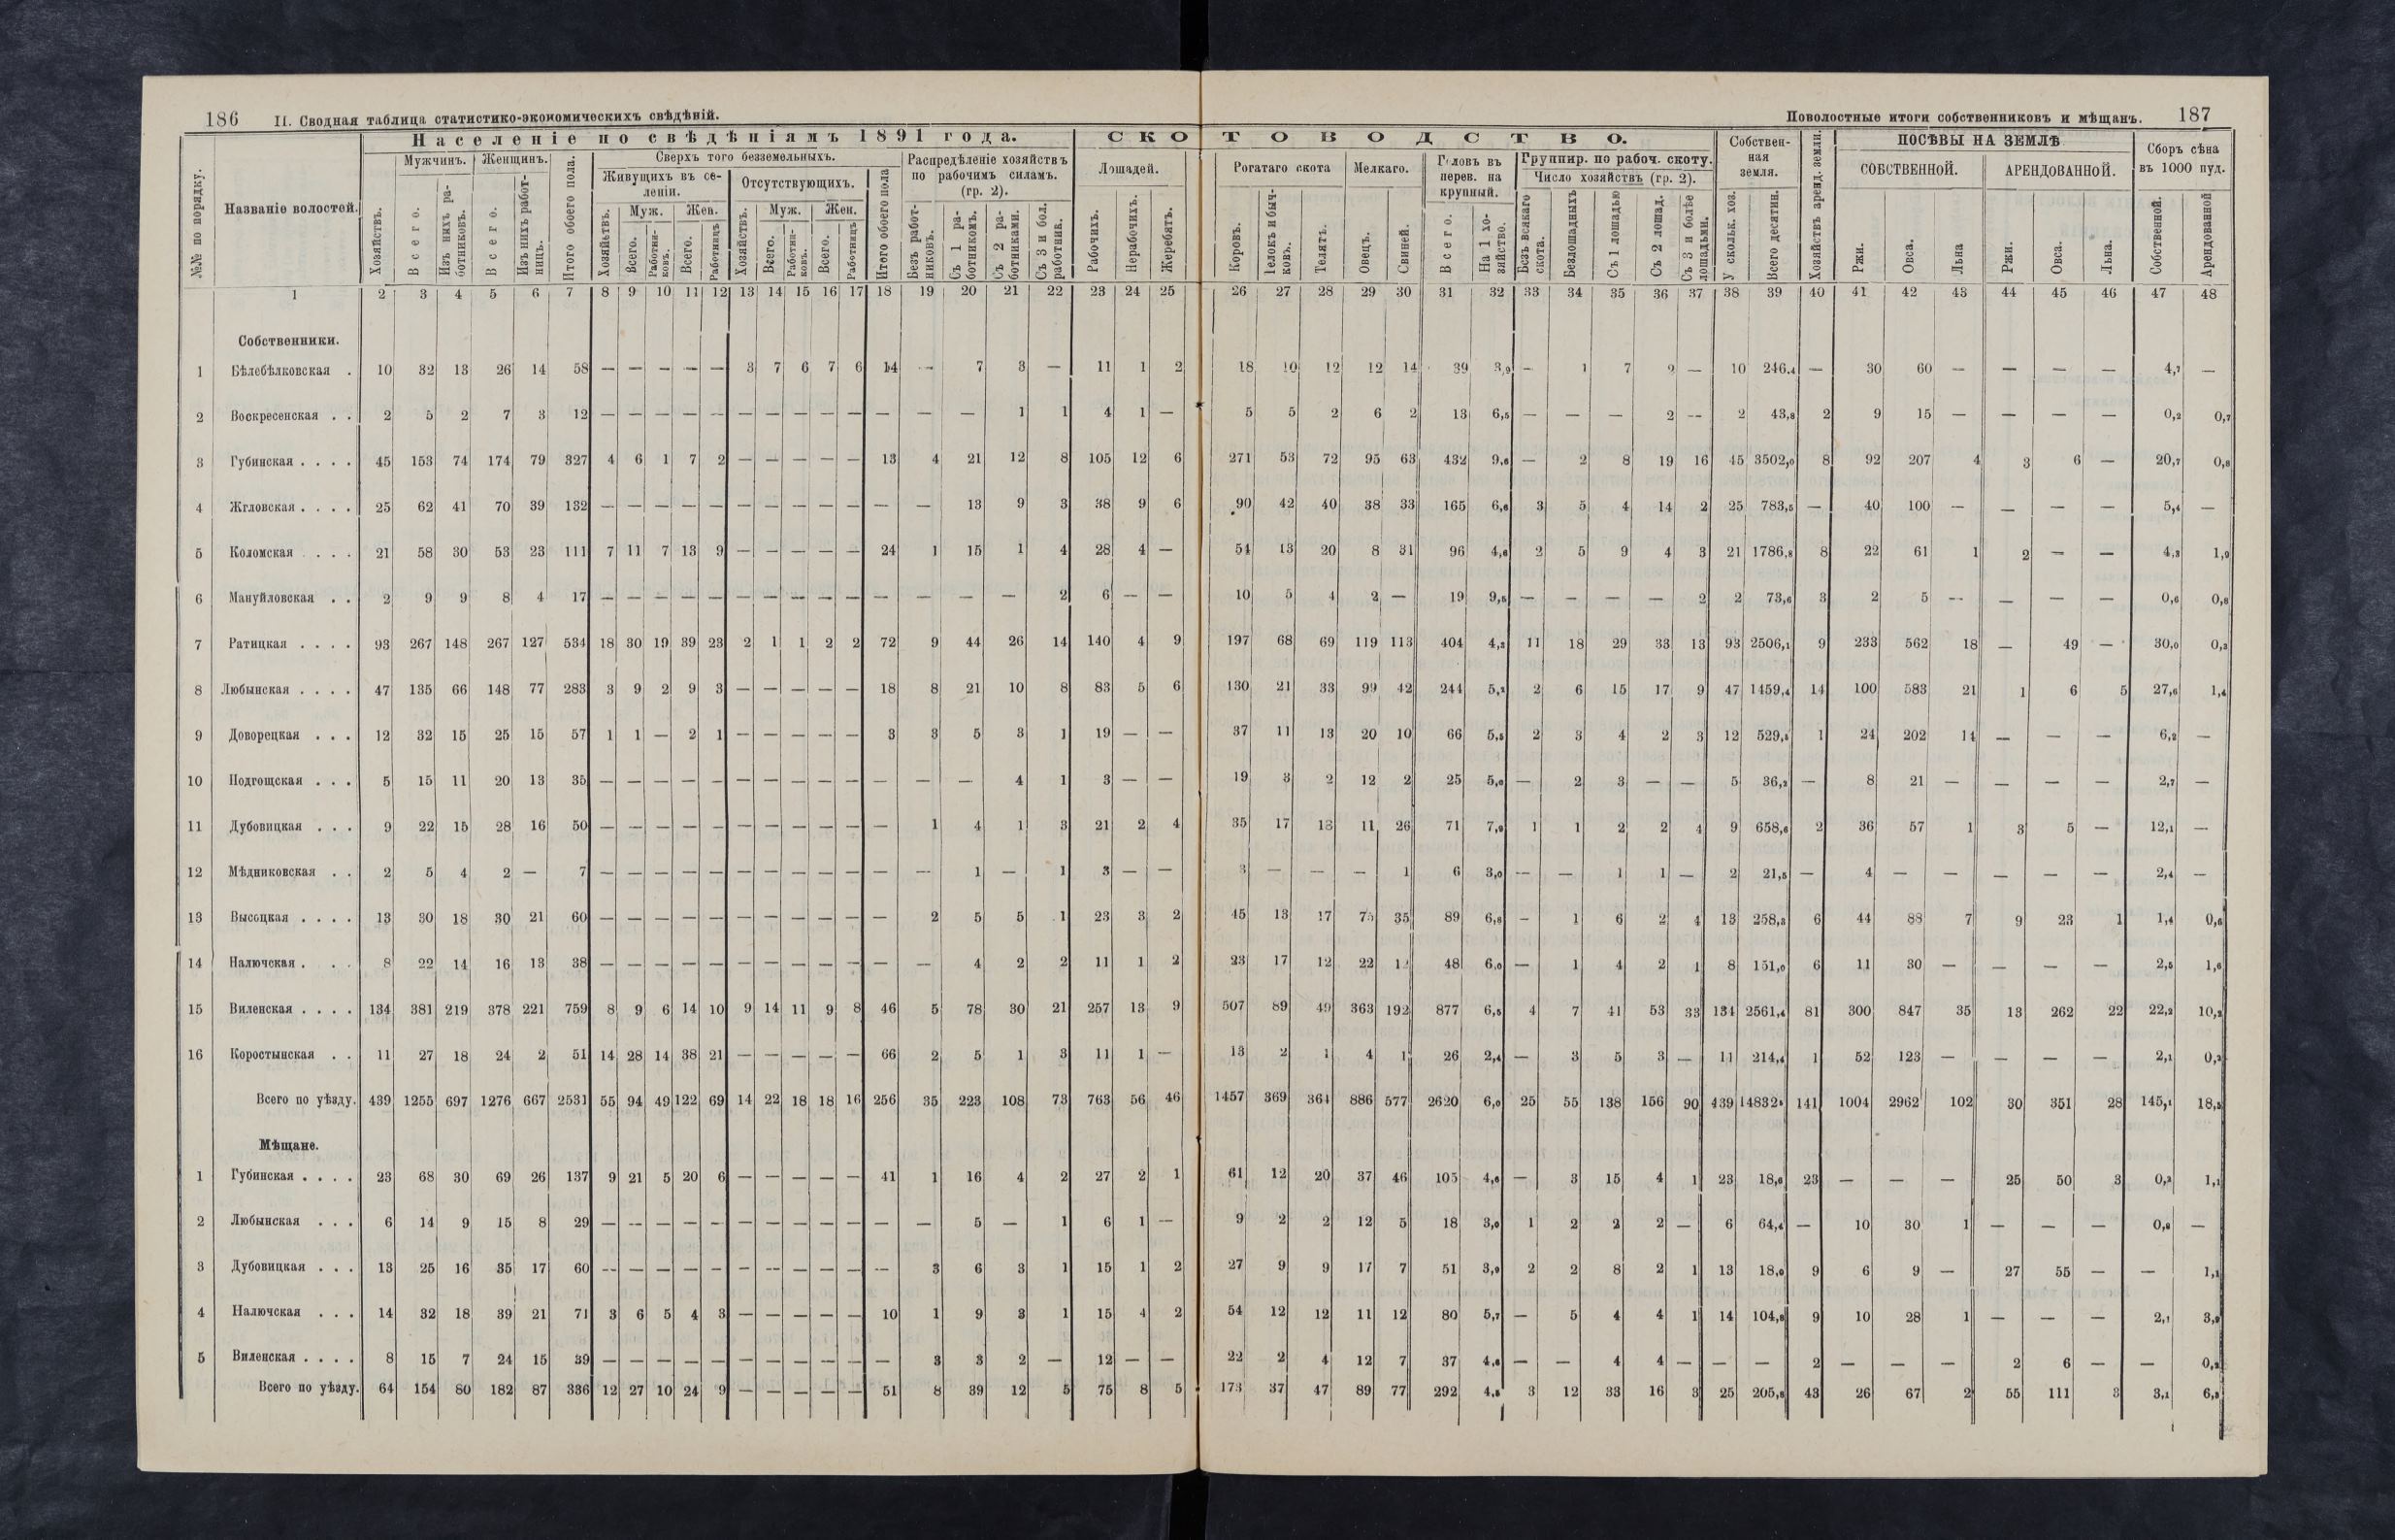 186 II. Сводная таблица статистико-экономическихъ свѣдѣній.
Поволостные итоги собственниковъ и мѣщанъ. 187
Населеніе по свѣдѣніямъ 1891 года.
СКОТОВОДСТВО.
№№ по порядку.
Названіе волостей.
Хозяйствъ.
Мужчинъ.
Всего.
Изъ нихъ работниковъ.
Женщинъ.
Всего.
Изъ нихъ работницъ.
Итого обоего пола.
Сверхъ того безземельныхъ.
Живущихъ въ селеніи.
Хозяйствъ.
Муж.
Всего.
Работниковъ.
Жен.
Всего.
Работницъ
Отсутствующихъ.
Хозяйствъ.
Муж.
Всего.
Работниковъ.
Жен.
Всего.
Работницъ
Итого обоего пола
Распредѣленіе хозяйствъ по рабочимъ силамъ. (гр. 2).
Безъ работниковъ.
Съ 1 работникомъ.
Съ 2 работниками.
Съ 3 и бол. работник.
Лошадей.
Рабочихъ.
Нерабочихъ.
Жеребятъ.
Рогатаго скота
Коровъ.
Телокъ и бычковъ.
Телятъ.
Мелкаго.
Овецъ.
Свиней.
Головъ въ перев. на крупный.
Всего.
На 1 хозяйство.
Группир. по рабоч. скоту.
Число хозяйствъ (гр. 2).
Безъ всякаго скота.
Безлошадныхъ
Съ 1 лошадью
Съ 2 лошад.
Съ 3 и болѣе лошадьми.
Собственная земля.
У скольк. хоз.
Всего десятин.
Хозяйствъ аренд. земли.
ПОСѢВЫ НА ЗЕМЛѢ
СОБСТВЕННОЙ.
Ржи.
Овса.
Льна
АРЕНДОВАННОЙ.
Ржи.
Овса.
Льна.
Сборъ сѣна въ 1000 пуд.
Собственной.
Арендованной
1 2 3 4 5 6 7 8 9 10 11 12 13 14 15 16 17 18 19 20 21 22 23 24 25 26 27 28 29 30 31 32 33 34 35 36 37 38 39 40 41 42 43 44 45 46 47 48
Собственники.
1 Бѣлебѣлковская . 10 32 13 26 14 58 — — — — — 3 7 6 7 6 14 — 7 3 — 11 1 2 18 10 12 12 14 39 3,9 — 1 7 2 — 10 246,4 — 30 60 — — — — 4,7 —
2 Воскресенская . . 2 5 2 7 3 12 — — — — — — — — — — — — — 1 1 4 1 — 5 5 2 6 2 13 6,5 — — — 2 — 2 43,8 2 9 15 — — — — 0,2 0,7
3 Губинская . . . . 45 153 74 174 79 327 4 6 1 7 2 — — — — — 13 4 21 12 8 105 12 6 271 53 72 95 63 432 9,6 — 2 8 19 16 45 3502,0 8 92 207 4 3 6 — 20,7 0,8
4 Жгловская . . . . 25 62 41 70 39 132 — — — — — — — — — — — — 13 9 3 38 9 6 90 42 40 38 33 165 6,6 3 5 4 14 2 25 783,5 — 40 100 — — — — 5,4 —
5 Коломская . . . 21 58 30 53 23 111 7 11 7 13 9 — — — — — 24 1 15 1 4 28 4 — 54 13 20 8 31 96 4,6 2 5 9 4 3 21 1786,8 8 22 61 1 2 — — 4,3 1,9
6 Мануйловская . . 2 9 9 8 4 17 — — — — — — — — — — — — — — 2 6 — — 10 5 4 2 — 19 9,5 — — — — 2 2 73,6 3 2 5 — — — — 0,6 0,8
7 Ратицкая . . . . 93 267 148 267 127 534 18 30 19 39 23 2 1 1 2 2 72 9 44 26 14 140 4 9 197 68 69 119 113 404 4,3 11 18 29 33 13 93 2506,1 9 233 562 18 — 49 — 30,0 0,3
8 Любынская . . . . 47 135 66 148 77 283 3 9 2 9 3 — — — — — 18 8 21 10 8 83 5 6 130 21 33 99 42 244 5,2 2 6 15 17 9 47 1459,4 14 100 583 21 1 6 5 27,6 1,4
9 Доворецкая . . . 12 32 15 25 15 57 1 1 — 2 1 — — — — — 3 3 5 3 1 19 — — 37 11 13 20 10 66 5,5 2 3 4 2 3 12 529,5 1 24 202 14 — — — 6,2 —
10 Подгощская . . . 5 15 11 20 13 35 — — — — — — — — — — — — — 4 1 3 — — 19 3 2 12 2 25 5,0 — 2 3 — — 5 36,3 — 8 21 — — — — 2,7 —
11 Дубовицкая . . . 9 22 15 28 16 50 — — — — — — — — — — — 1 4 1 3 21 2 4 35 17 13 11 26 71 7,9 1 1 2 2 4 9 658,6 2 36 57 1 3 5 — 12,1 —
12 Мѣдниковская . . 2 5 4 2 — 7 — — — — — — — — — — — — 1 — 1 3 — — 3 — — — 1 6 3,0 — — 1 1 — 2 21,5 — 4 — — — — — 2,4 —
13 Высоцкая . . . . 13 30 18 30 21 60 — — — — — — — — — — — 2 5 5 1 23 3 2 45 13 17 75 35 89 6,8 — 1 6 2 4 13 258,3 6 44 88 7 9 23 1 1,4 0,6
14 Налючская . . . 8 22 14 16 13 38 — — — — — — — — — — — — 4 2 2 11 1 2 23 17 12 22 48 6,0 — 1 4 2 1 8 151,0 6 11 30 — — — — 2,5 1,6
15 Виленская . . . . 134 381 219 378 221 759 8 9 6 14 10 9 14 11 9 8 46 5 78 30 21 257 13 9 507 89 49 363 192 877 6,5 4 7 41 53 33 134 2561,4 81 300 847 35 13 262 22 22,2 10,3
16 Коростынская . . 11 27 18 24 2 51 14 28 14 38 21 — — — — — 66 2 5 1 3 11 1 — 13 2 1 4 1 26 2,4 — 3 5 3 — 11 214,4 1 52 123 — — — — 2,1 0,3
Всего по уѣзду. 439 1255 697 1276 667 2531 55 94 49 122 69 14 22 18 18 16 256 35 223 108 73 763 56 46 1457 369 364 886 577 2620 6,0 25 55 138 156 90 439 14832 141 1004 2962 102 30 351 28 145,1 18,3
Мѣщане.
1 Губинская . . . . 23 68 30 69 26 137 9 21 5 20 6 — — — — — 41 1 16 4 2 27 2 1 61 12 20 37 46 105 4,6 — 3 15 4 1 23 18,6 23 — — — 25 50 3 0,3 1,1
2 Любынская . . . 6 14 9 15 8 29 — — — — — — — — — — — — 5 — 1 6 1 — 9 2 2 12 5 18 3,0 1 2 2 2 — 6 64,4 — 10 30 1 — — — 0,8 —
3 Дубовицкая . . . 13 25 16 35 17 60 — — — — — — — — — — — 3 6 3 1 15 1 2 27 9 9 17 7 51 3,9 2 2 8 2 1 13 18,0 9 6 9 — 27 55 — — 1,1
4 Налючская . . . 14 32 18 39 21 71 3 6 5 4 3 — — — — — 10 1 9 3 1 15 4 2 54 12 12 11 12 80 5,7 — 5 4 4 1 14 104,8 9 10 28 1 — — — 2,1 3,9
5 Виленская . . . . 8 15 7 24 15 39 — — — — — — — — — — — 3 3 2 — 12 — — 22 2 4 12 7 37 4,6 — — 4 4 — — — 2 — — — 2 6 — — 0,2
Всего по уѣзду. 64 154 80 182 87 336 12 27 10 24 9 — — — — — 51 8 39 12 5 75 8 5 173 37 47 89 77 292 4,5 3 12 33 16 3 25 205,8 43 26 67 2 55 111 3 3,1 6,3